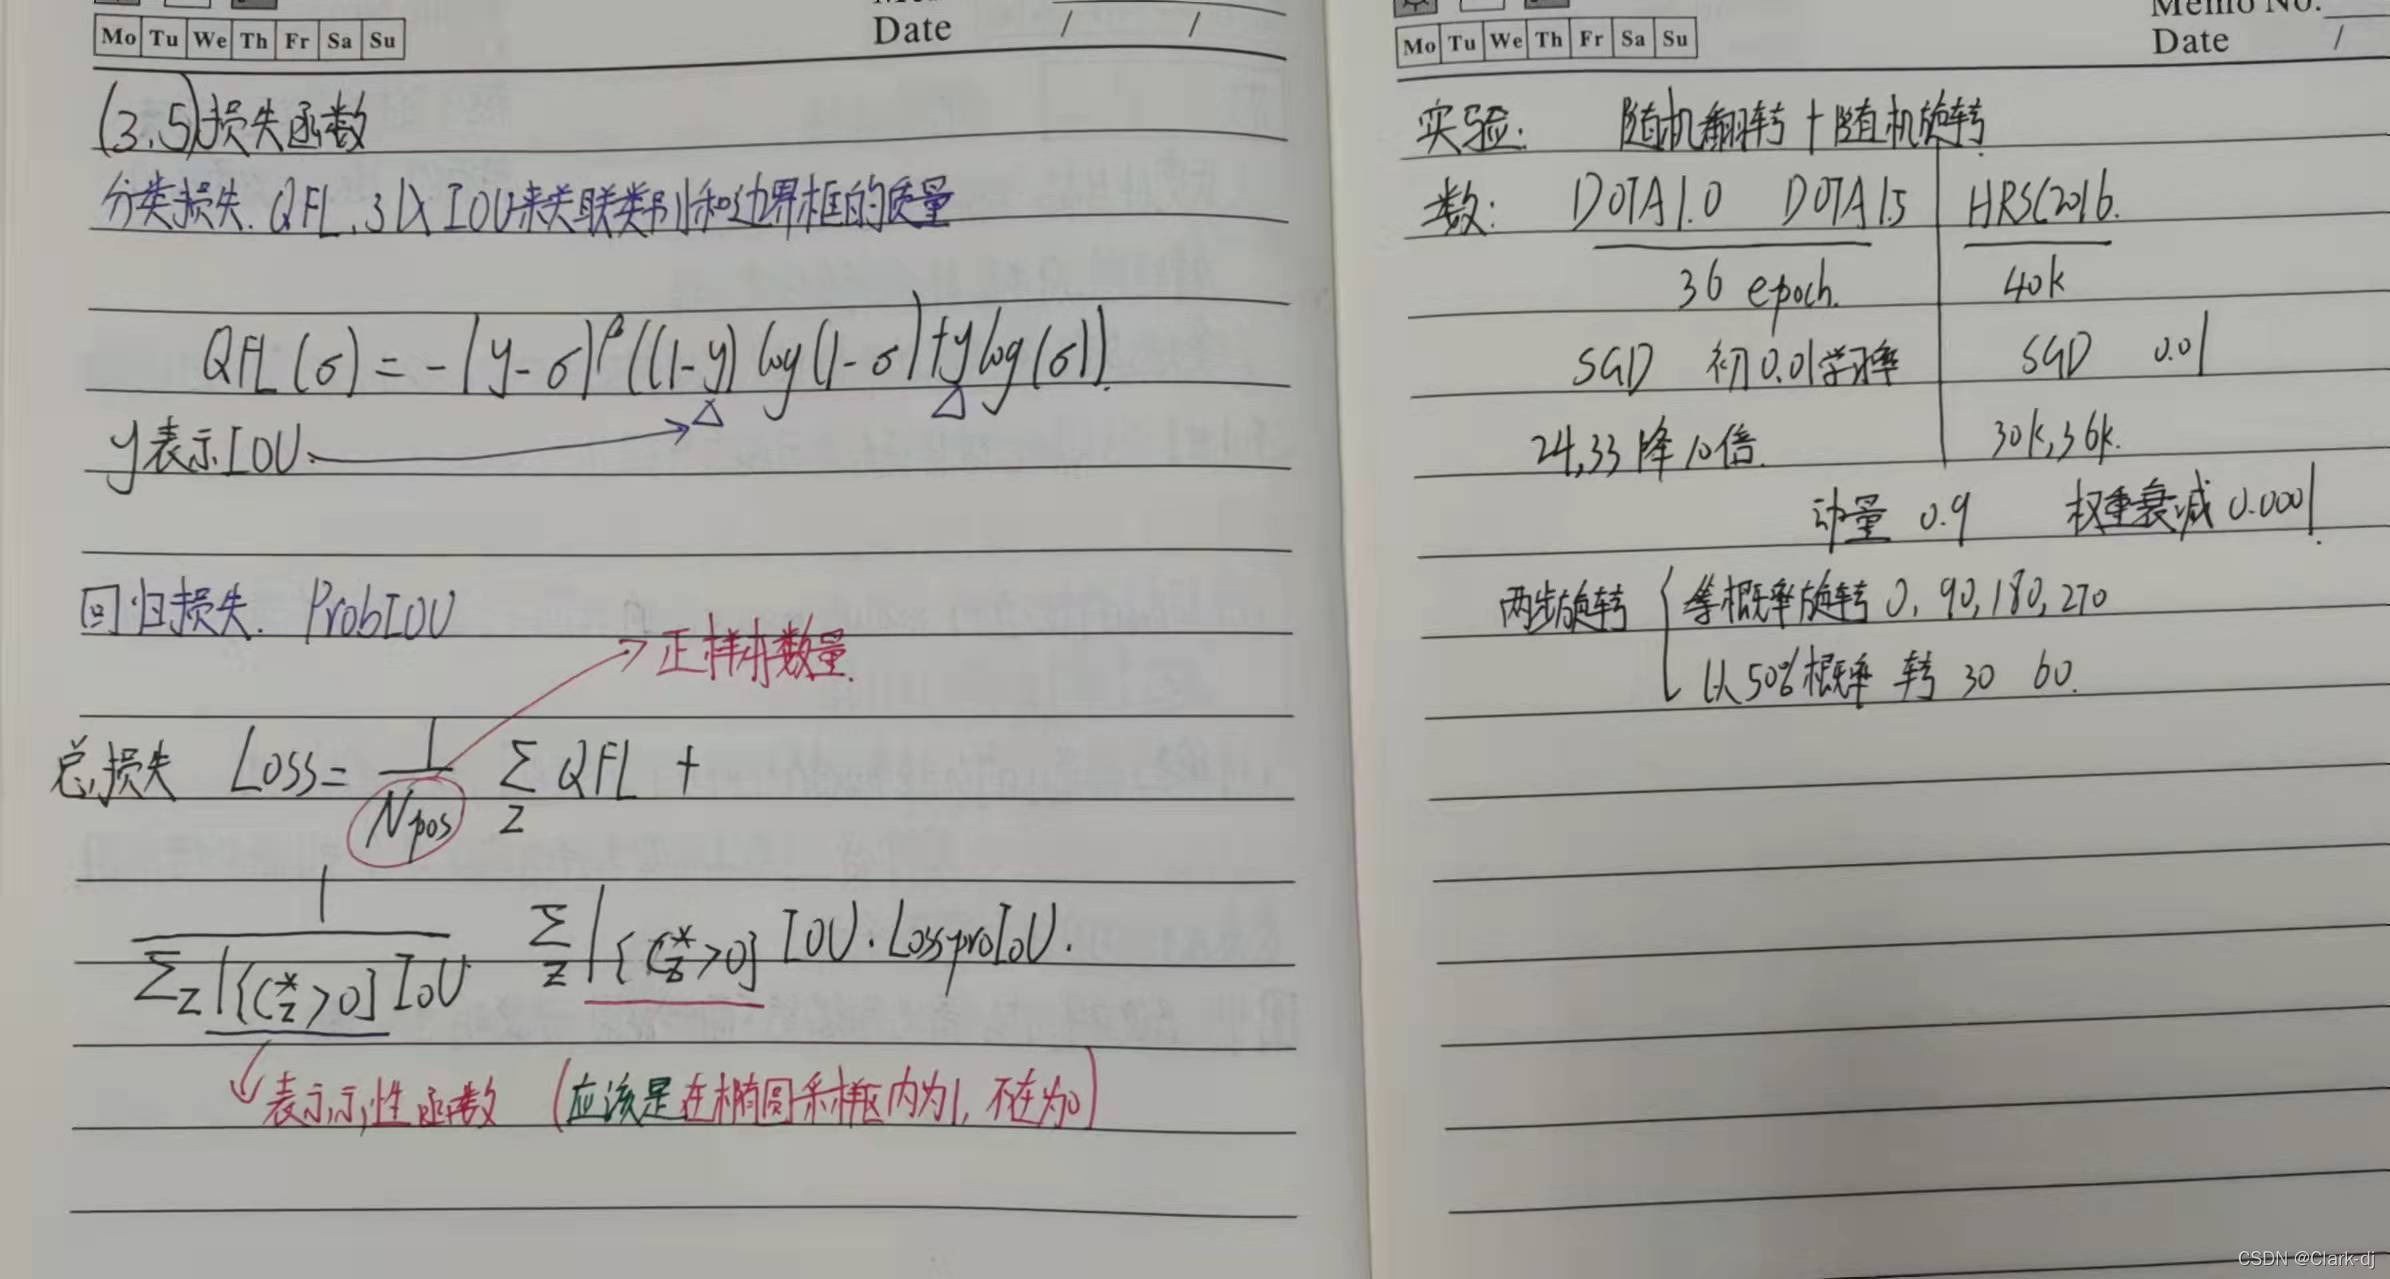 Mo Tu We Th Fr Sa Su
Date / /
(3.5)损失函数
分类损失. QFL, 引入IOU来关联类别和边界框的质量
QFL(σ) = -|y-σ|^β((1-y) log(1-σ)+y log(σ)).
y表示IOU.
回归损失. ProbIOU
正样本数量.
总损失 Loss = 1/Npos Σ_z QFL +
1/(Σ_z 1{C_z^*>0} IoU) Σ_z 1{C_z^*>0} IOU. LossproIoU.
表示示性函数 (应该是在椭圆采样区内为1, 不在为0)
Mo Tu We Th Fr Sa Su
Memo No.
Date /
实验: 随机翻转+随机旋转
数: DOTA1.0 DOTA1.5 HRSC2016.
36 epoch. 40k
SGD 初0.01学习率 SGD 0.01
24,33降10倍. 30k,36k.
动量 0.9 权重衰减 0.0001.
两步旋转 { 等概率旋转 0, 90, 180, 270
以50%概率 转 30 60.
CSDN @Clark-dj